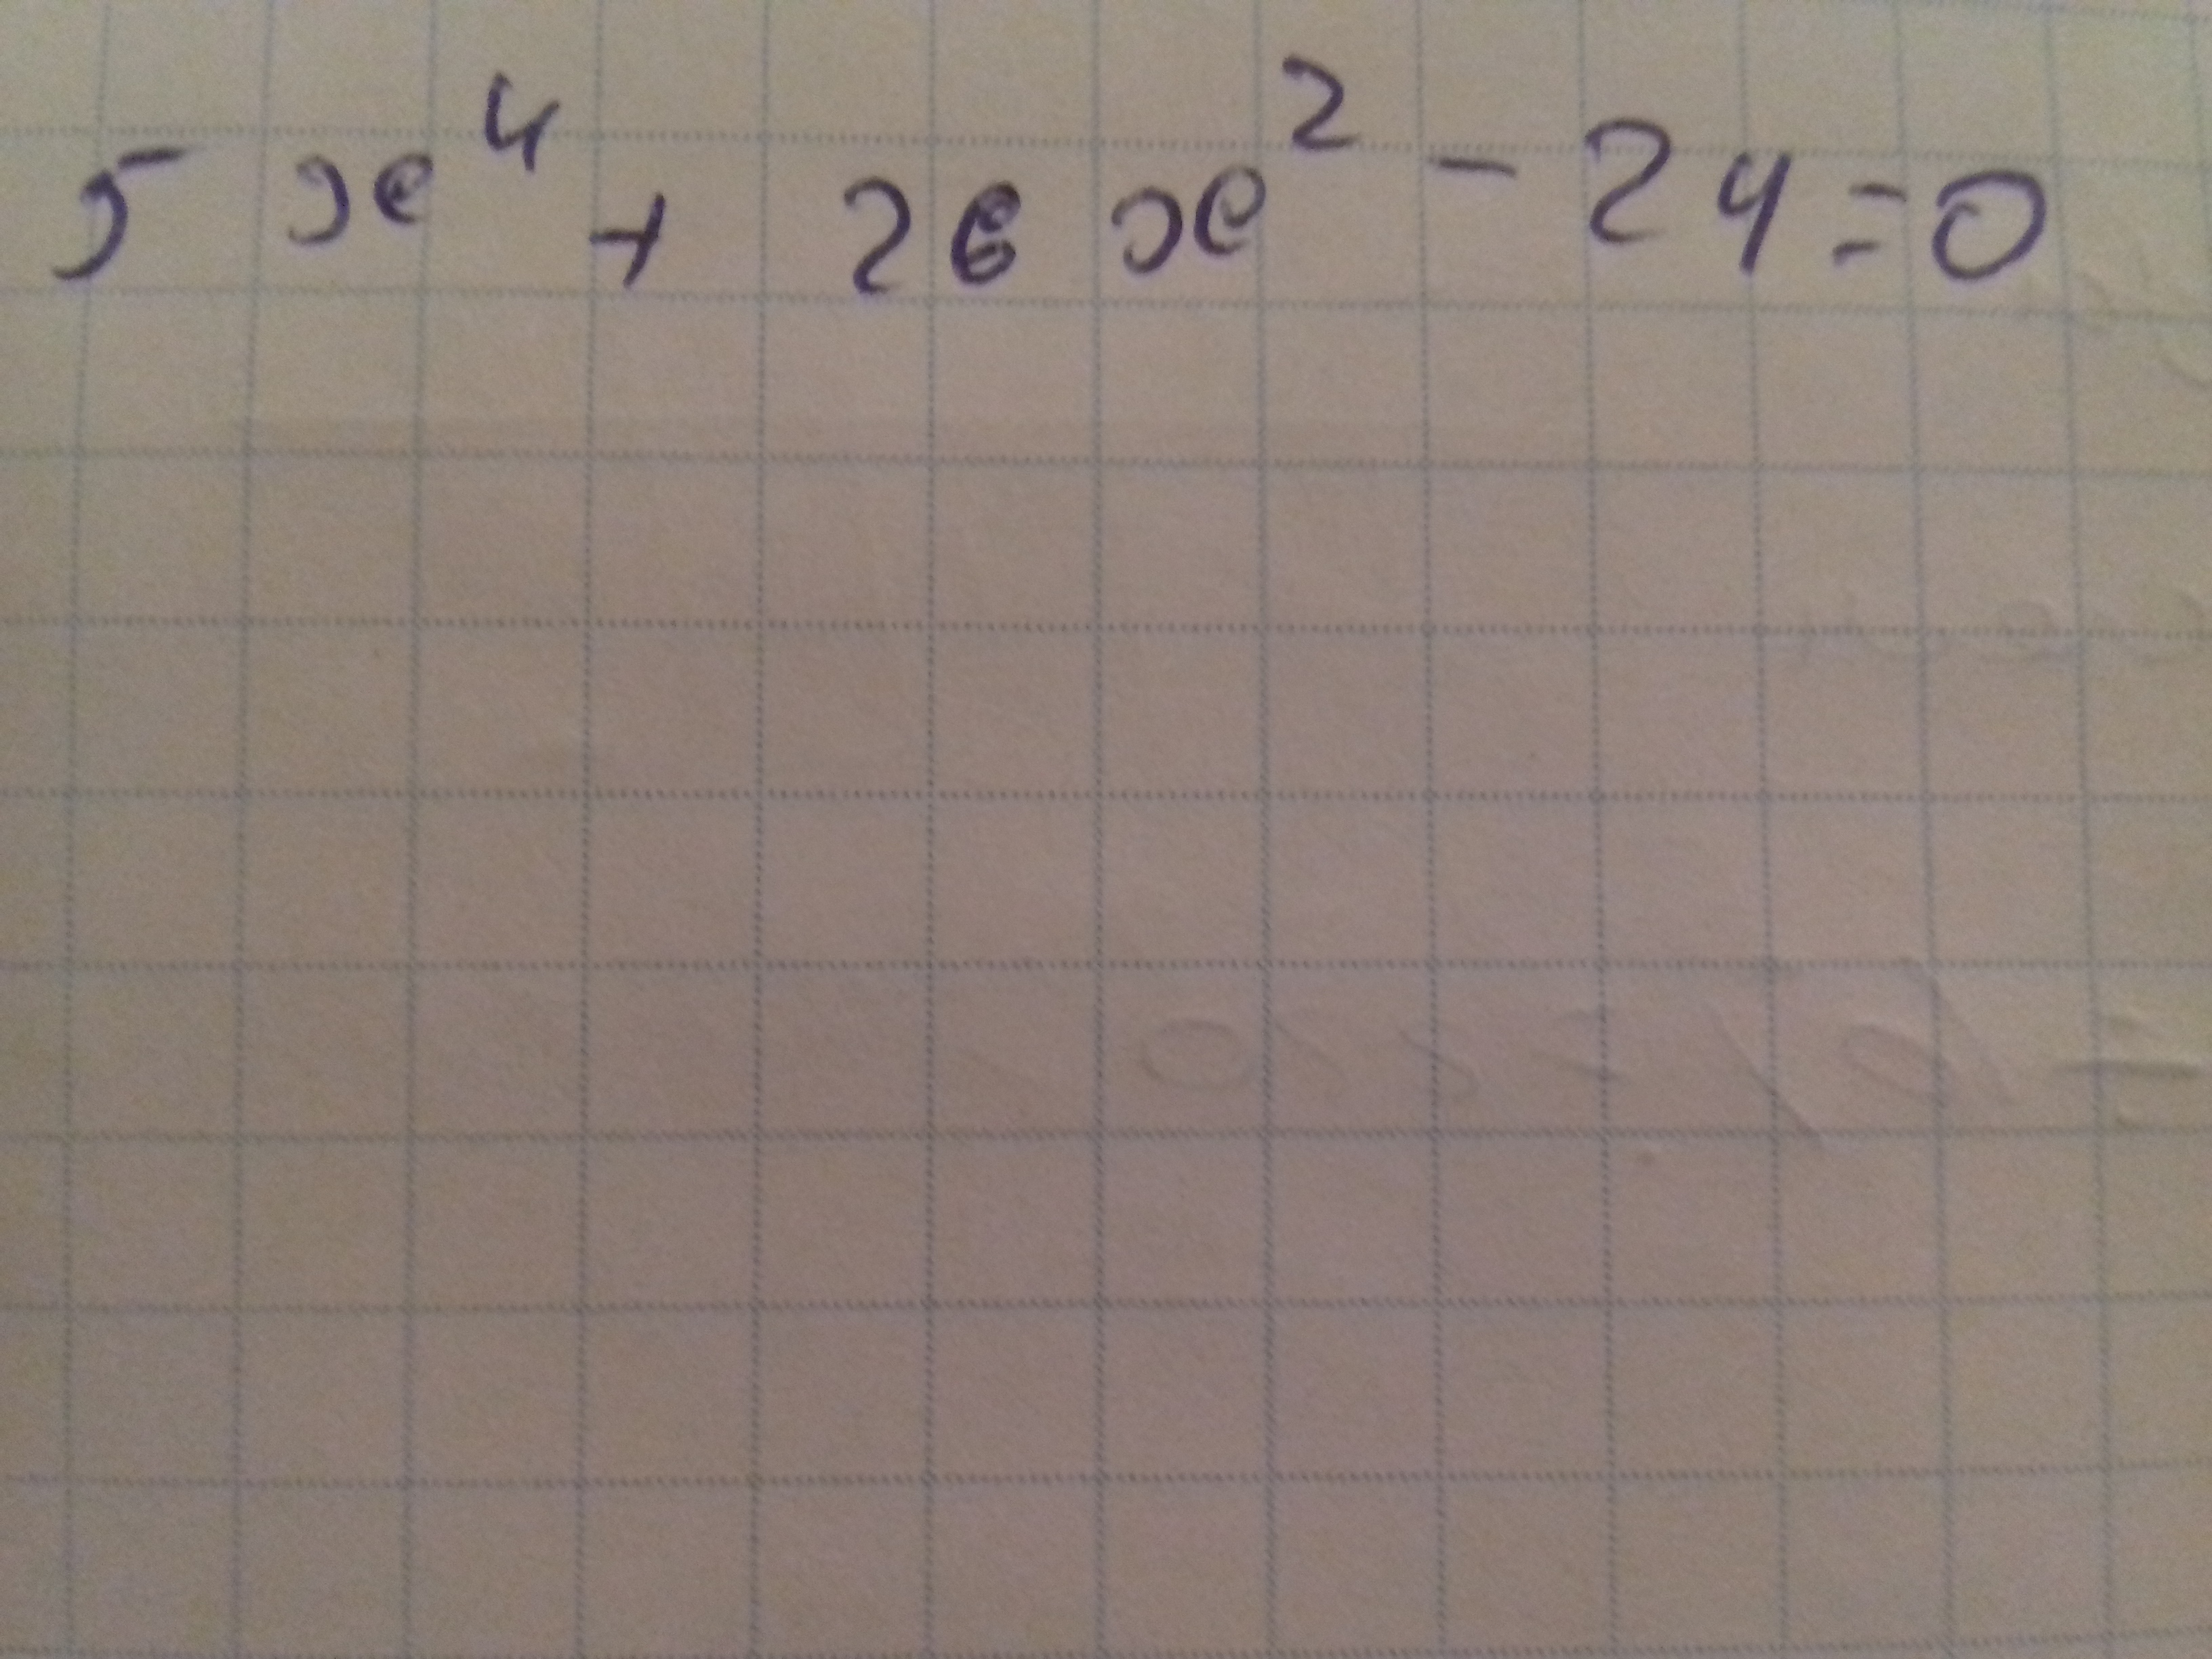 5x⁴ + 26x² - 24 = 0